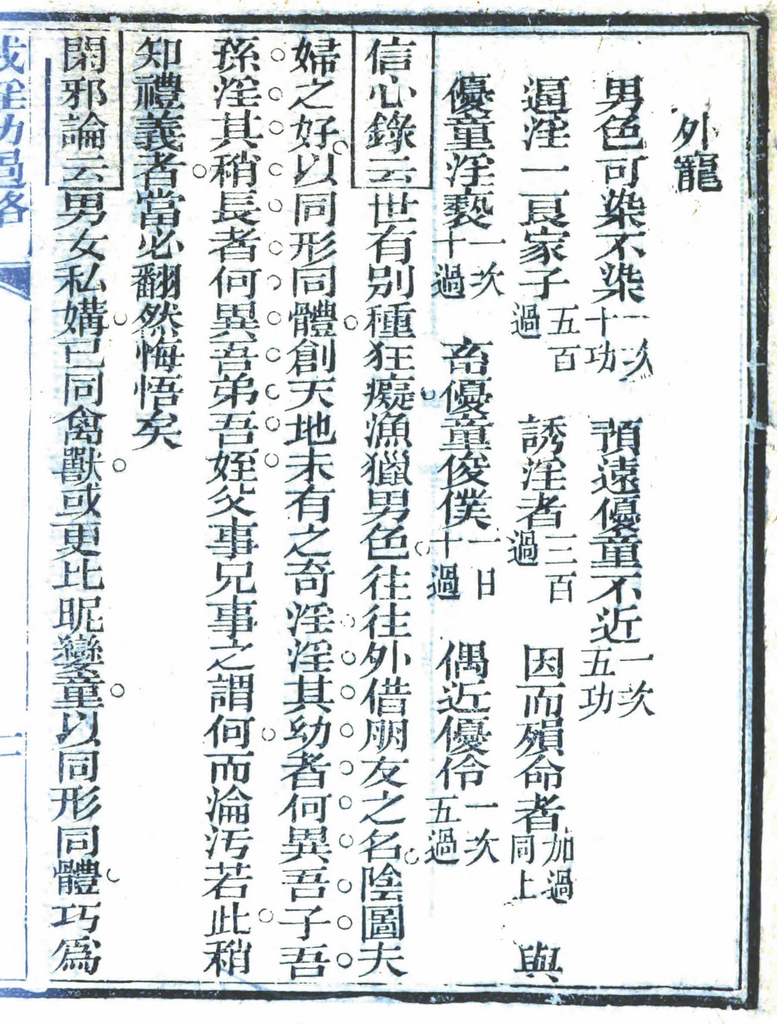 外寵
男色可染不染一次十功　預遠優童不近一次五功
逼淫一良家子五百過　誘淫者三百過　因而殞命者加過同上　與
優童淫褻一次十過　畜優童俊僕一日十過　偶近優伶一次五過
信心錄云世有別種狂癡漁獵男色往往外借朋友之名陰圖夫
婦之好以同形同體創天地未有之奇淫淫其幼者何異吾子吾
孫淫其稍長者何異吾弟吾姪父事兄事之謂何而淪汚若此稍
知禮義者當必翻然悔悟矣
閑邪論云男女私媾已同禽獸或更比昵孌童以同形同體巧爲
戒淫功過格
一